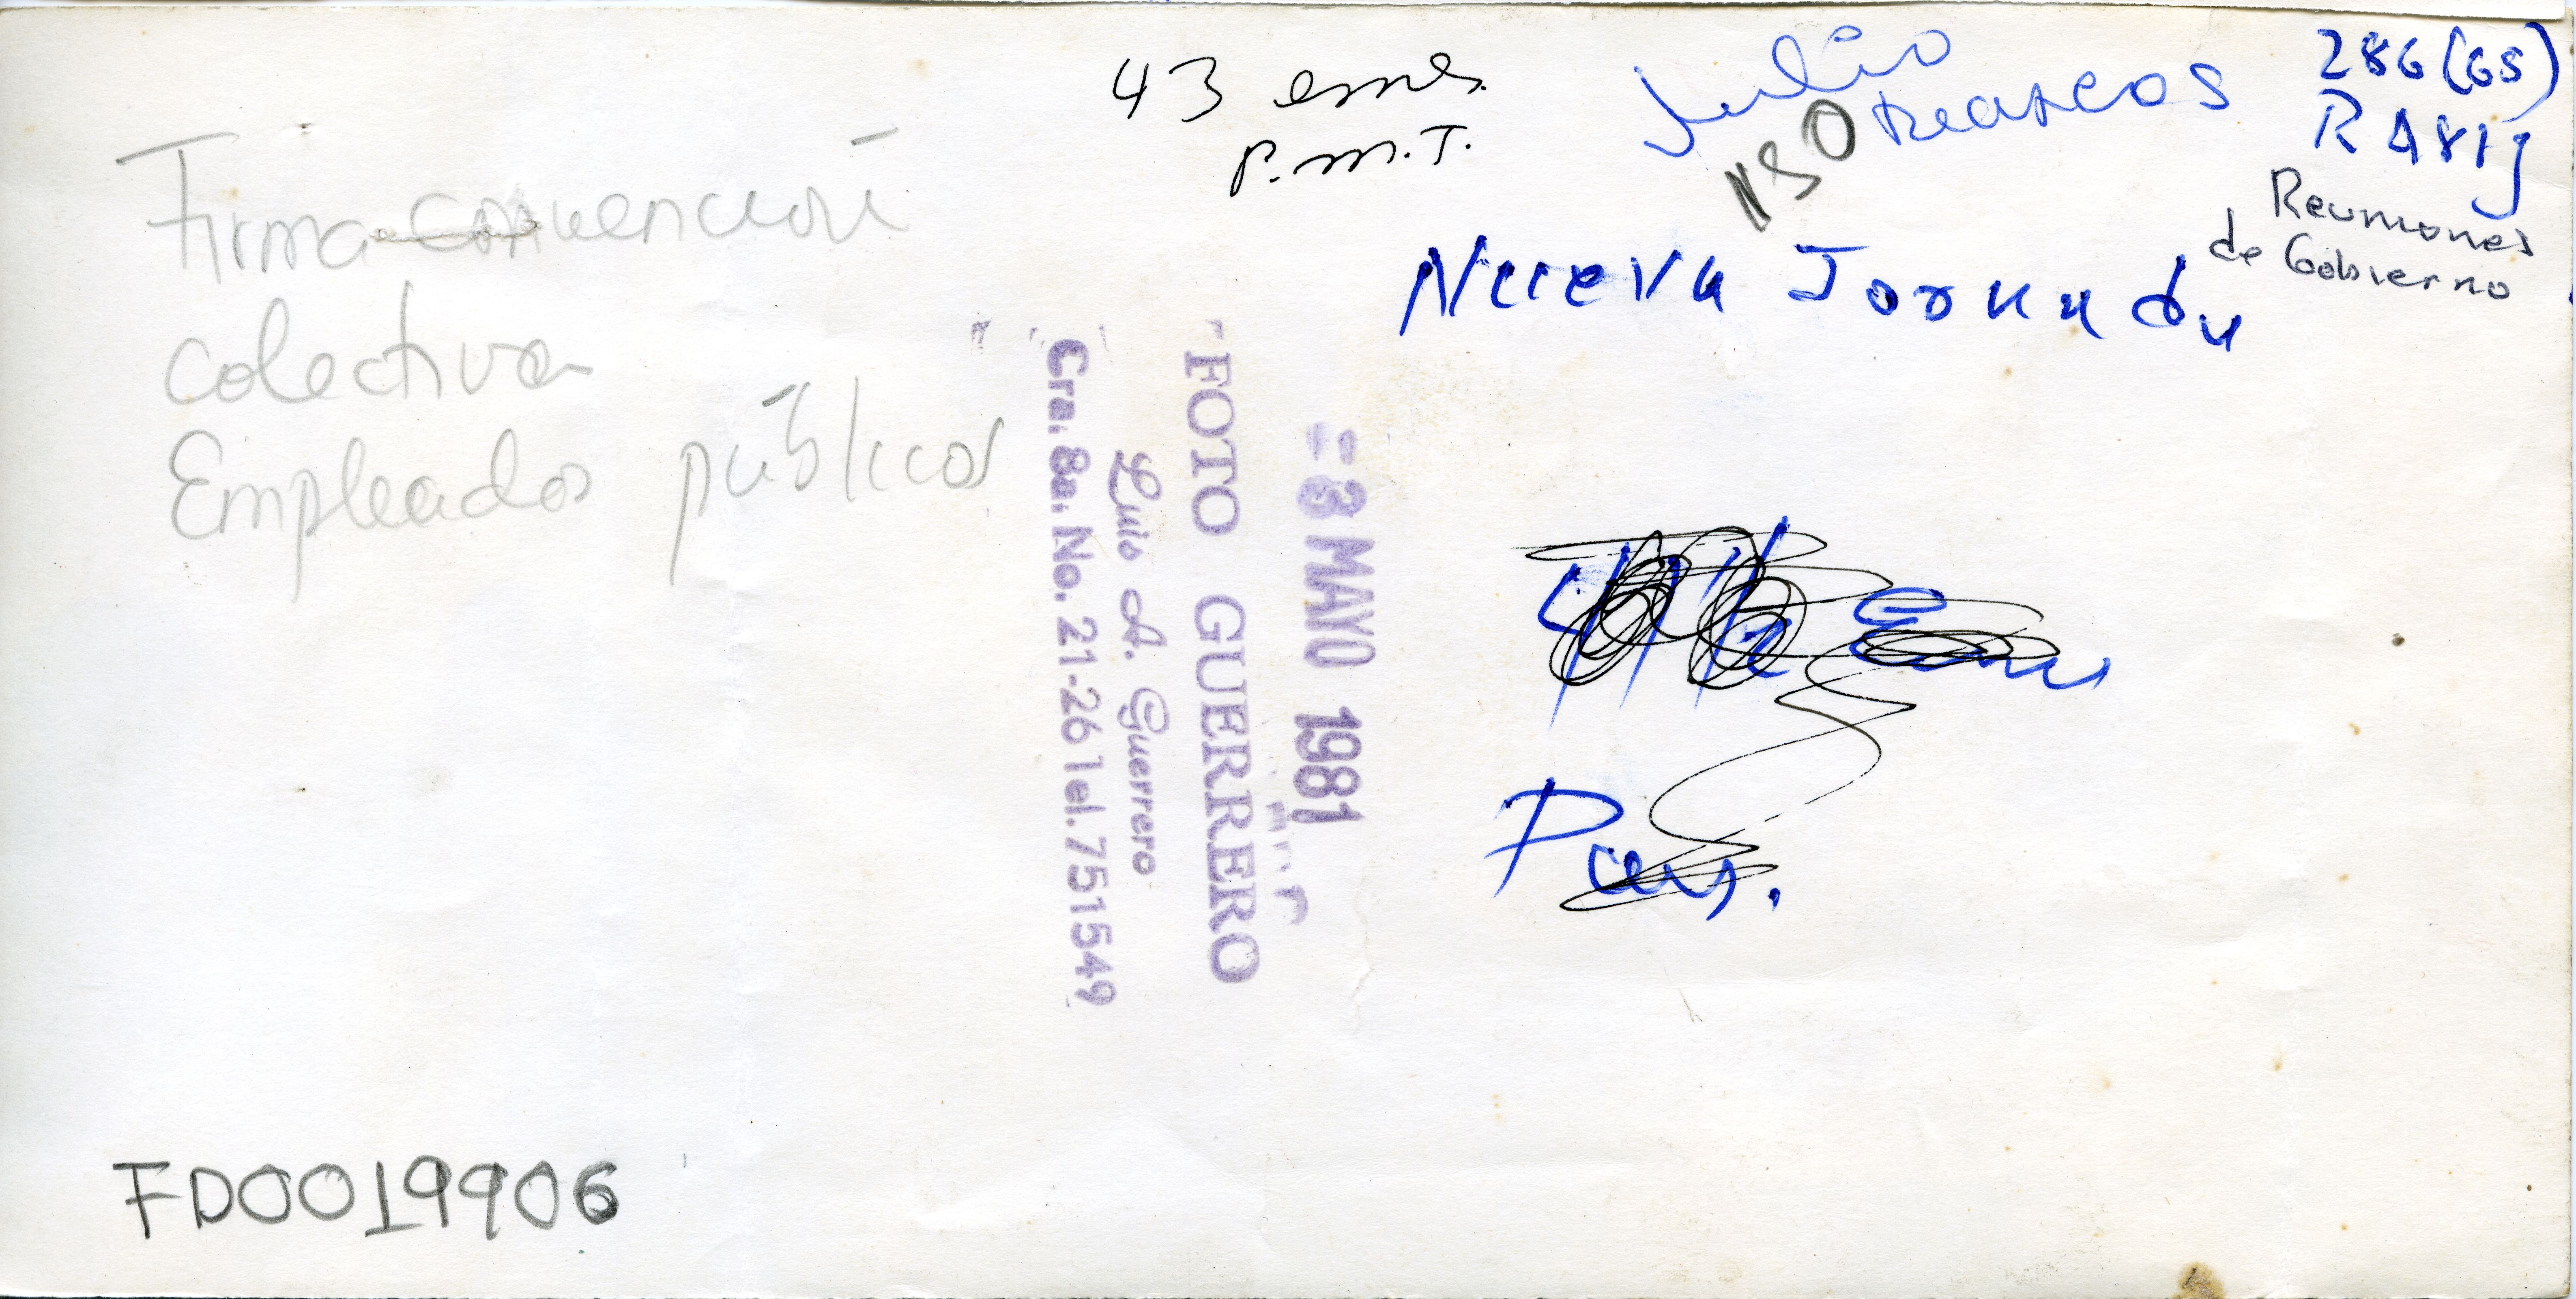 Firma convención
colectiva
Empleados públicos
43 ems.
P.M.T.
Julio
Marcos
150
286 (GS)
RA81j
Reuniones
de Gobierno
Nueva Jornada
-8 MAYO 1981
FOTO GUERRERO
Luis A. Guerrero
Cra. 8a. No. 21-26 Tel. 751549
FD0019906